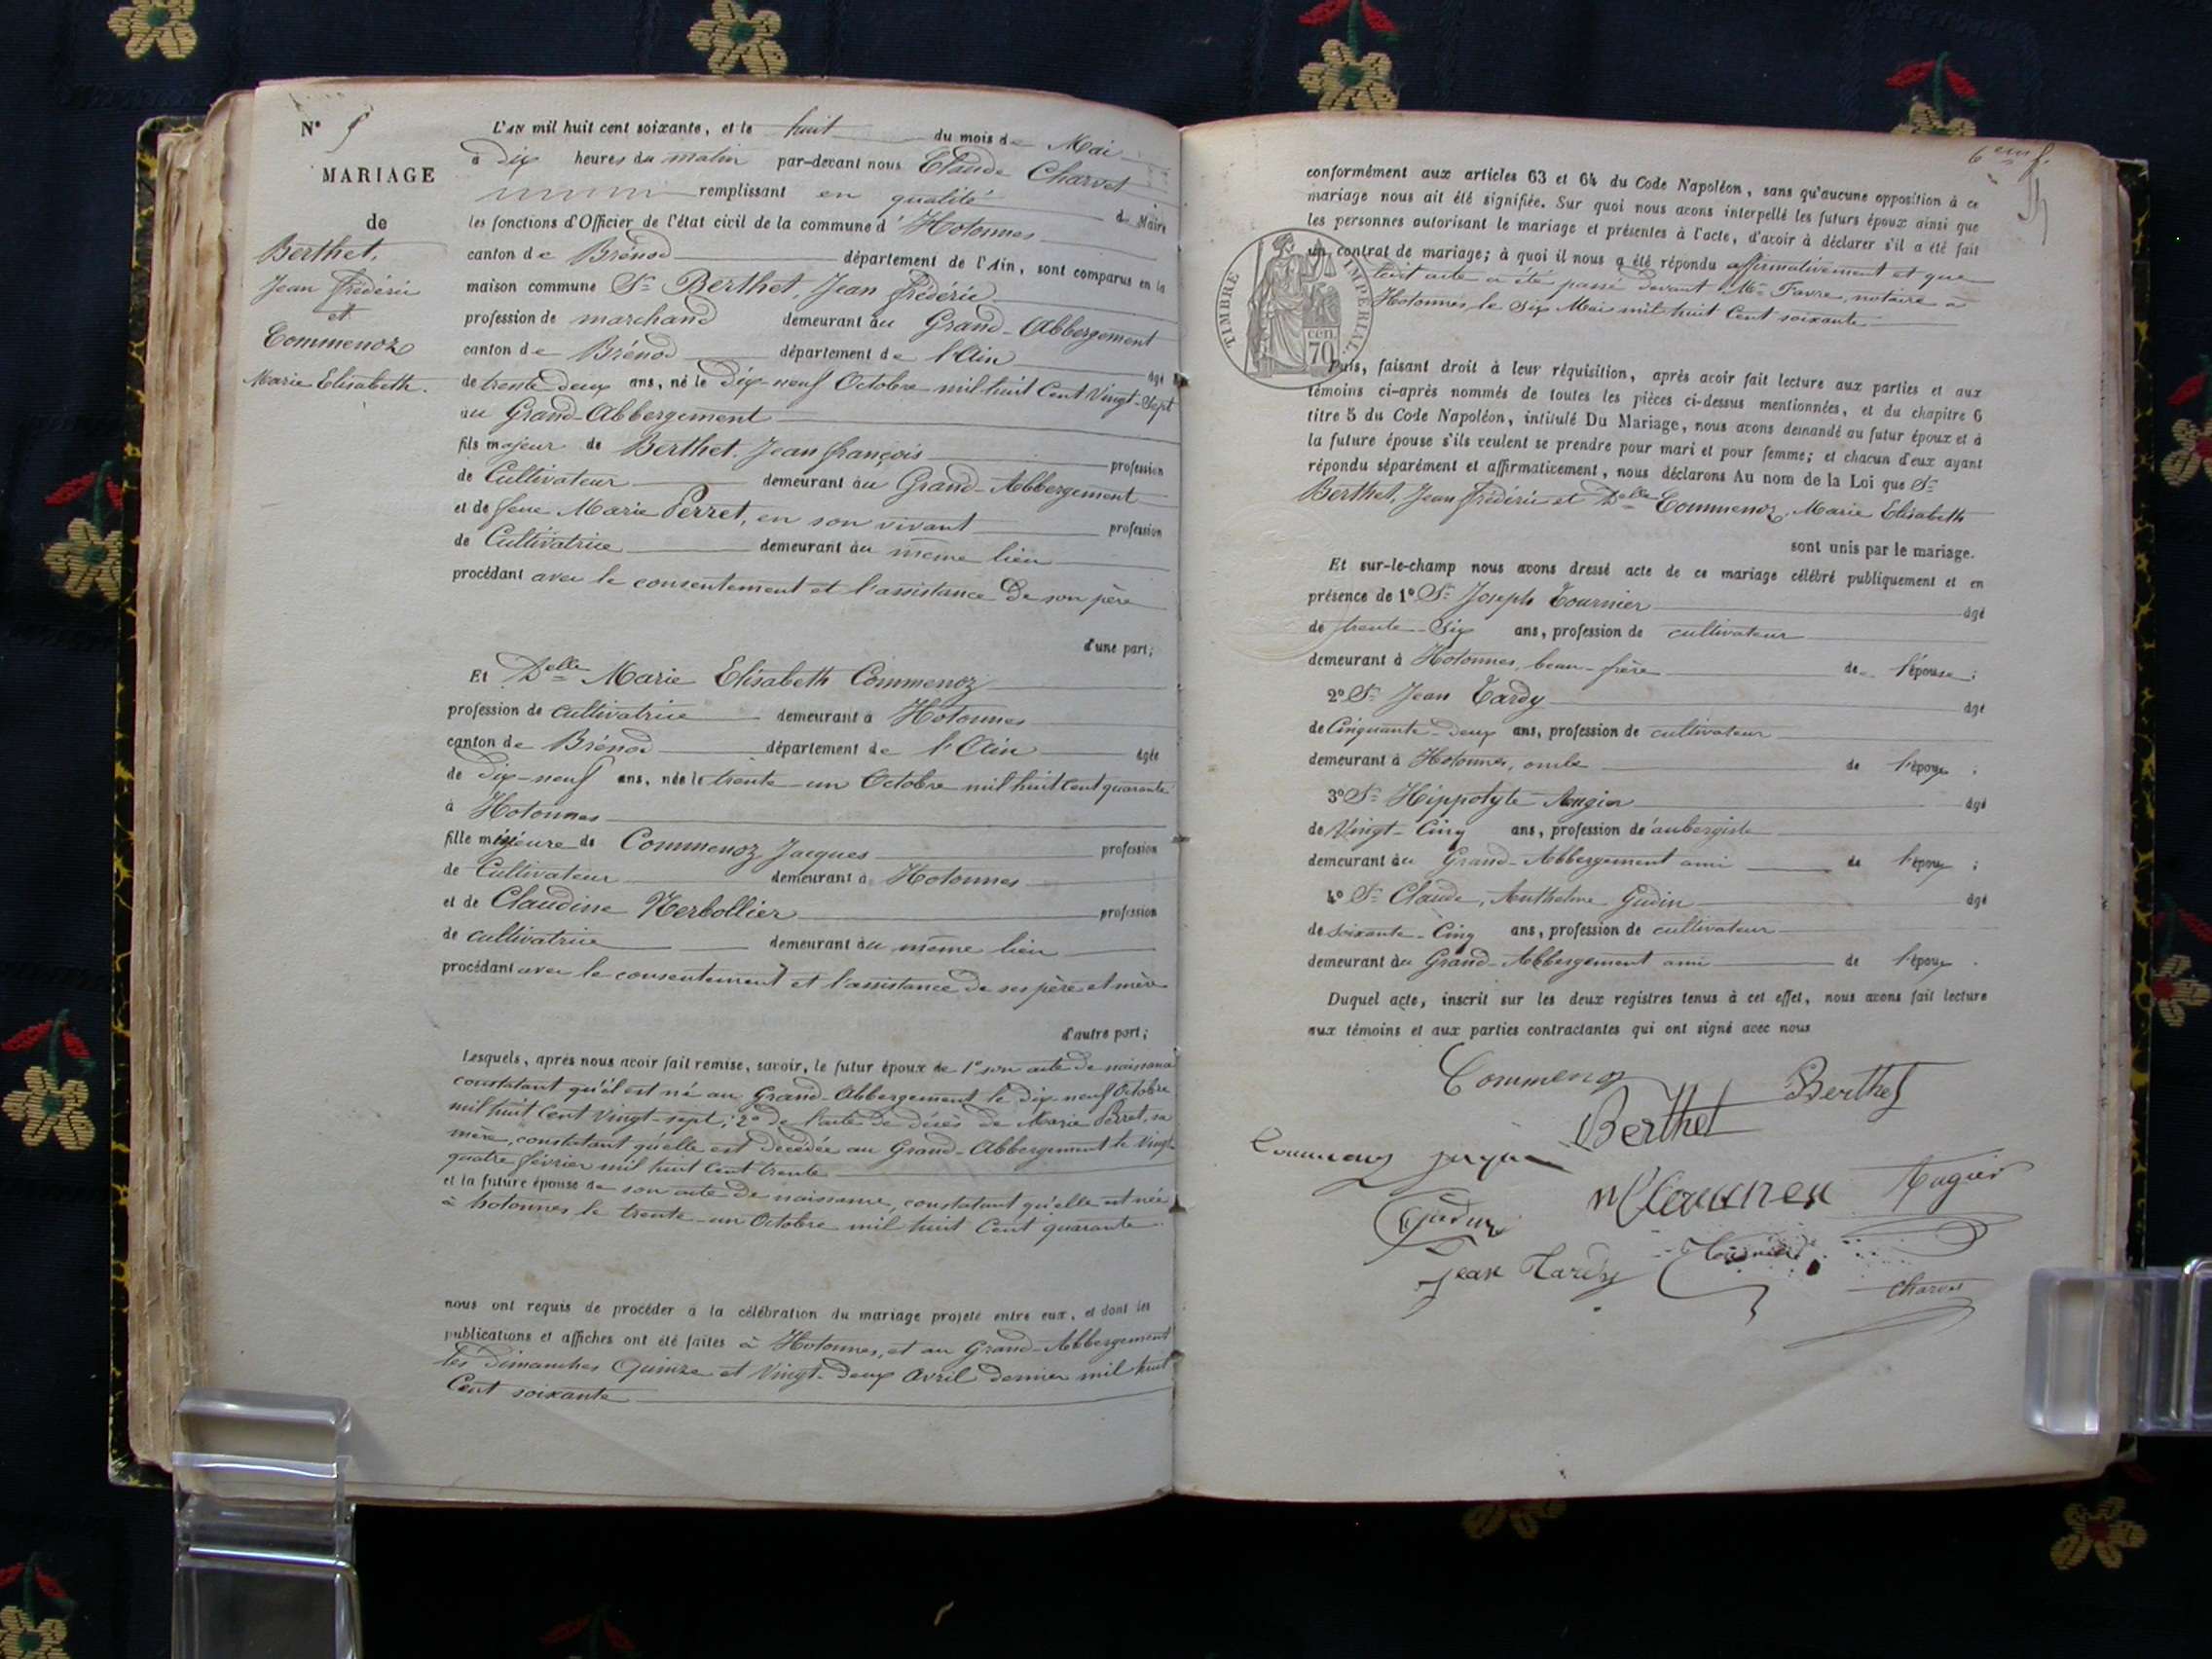 N° 5
MARIAGE
de
Berthet,
Jean Frédéric
et
Commenoz
Marie Elisabeth.
L'AN mil huit cent soixante, et le huit du mois de Mai
à dix heures du matin par-devant nous Claude Charvet
remplissant en qualité de Maire
les fonctions d'Officier de l'état civil de la commune d' Hotonnes
canton de Brénod département de l'Ain, sont comparus en la
maison commune Sr Berthet, Jean Frédéric
profession de marchand demeurant au Grand-Abbergement
canton de Brénod département de l'Ain âgé
de trente deux ans, né le dix-neuf Octobre mil huit Cent Vingt-Sept
au Grand-Abbergement
fils majeur de Berthet, Jean françois profession
de Cultivateur demeurant au Grand-Abbergement
et de feue Marie Perret, en son vivant profession
de Cultivatrice demeurant au même lieu
procédant avec le consentement et l'assistance de son père
d'une part;
Et Delle Marie Elisabeth Commenoz
profession de cultivatrice demeurant à Hotonnes
canton de Brénod département de l'Ain âgée
de dix-neuf ans, née le trente-un Octobre mil huit Cent quarante
à Hotonnes
fille mineure de Commenoz Jacques profession
de Cultivateur demeurant à Hotonnes
et de Claudine profession
de cultivatrice demeurant au même lieu
procédant avec le consentement et l'assistance de ses père et mère
d'autre part;
Lesquels, après nous avoir fait remise, savoir, le futur époux de 1° son acte de naissance
constatant qu'il est né au Grand-Abbergement le dix-neuf Octobre
mil huit Cent Vingt-sept; 2° de l'acte de décès de Marie Perret, sa
mère, constatant qu'elle est décédée au Grand-Abbergement le Vingt-
quatre février mil huit Cent trente
et la future épouse de son acte de naissance, constatant qu'elle est née
à hotonnes le trente-un Octobre mil huit Cent quarante
nous ont requis de procéder à la célébration du mariage projeté entre eux, et dont les
publications et affiches ont été faites à Hotonnes, et au Grand-Abbergement
les dimanches Quinze et Vingt-deux avril dernier mil huit
Cent soixante
6 enf.
conformément aux articles 63 et 64 du Code Napoléon, sans qu'aucune opposition à ce
mariage nous ait été signifiée. Sur quoi nous avons interpellé les futurs époux ainsi que
les personnes autorisant le mariage et présentes à l'acte, d'avoir à déclarer s'il a été fait
un contrat de mariage; à quoi il nous a été répondu affirmativement et que
ledit acte a été passé devant Me Favre, notaire à
Hotonnes, le Six Mai mil huit Cent soixante
TIMBRE IMPÉRIAL.
cen.
70
Puis, faisant droit à leur réquisition, après avoir fait lecture aux parties et aux
témoins ci-après nommés de toutes les pièces ci-dessus mentionnées, et du chapitre 6
titre 5 du Code Napoléon, intitulé Du Mariage, nous avons demandé au futur époux et à
la future épouse s'ils veulent se prendre pour mari et pour femme; et chacun d'eux ayant
répondu séparément et affirmativement, nous déclarons Au nom de la Loi que Sr
Berthet, Jean Frédéric et Delle Commenoz, Marie Elisabeth
sont unis par le mariage.
Et sur-le-champ nous avons dressé acte de ce mariage célébré publiquement et en
présence de 1° Sr Joseph Tournier âgé
de trente-Six ans, profession de cultivateur
demeurant à Hotonnes, beau-frère de l'épouse;
2° Sr Jean Tardy âgé
de Cinquante-deux ans, profession de cultivateur
demeurant à Hotonnes, oncle de l'époux;
3° Sr Hippolyte Augier âgé
de Vingt-Cinq ans, profession d'aubergiste
demeurant au Grand-Abbergement ami de l'époux;
4° Sr Claude, Anthelme Gudin âgé
de soixante-Cinq ans, profession de cultivateur
demeurant au Grand-Abbergement ami de l'époux.
Duquel acte, inscrit sur les deux registres tenus à cet effet, nous avons fait lecture
aux témoins et aux parties contractantes qui ont signé avec nous
Commenoz
Berthet
Berthet
Augier
Gudin
Jean Tardy
Tournier
Charvet